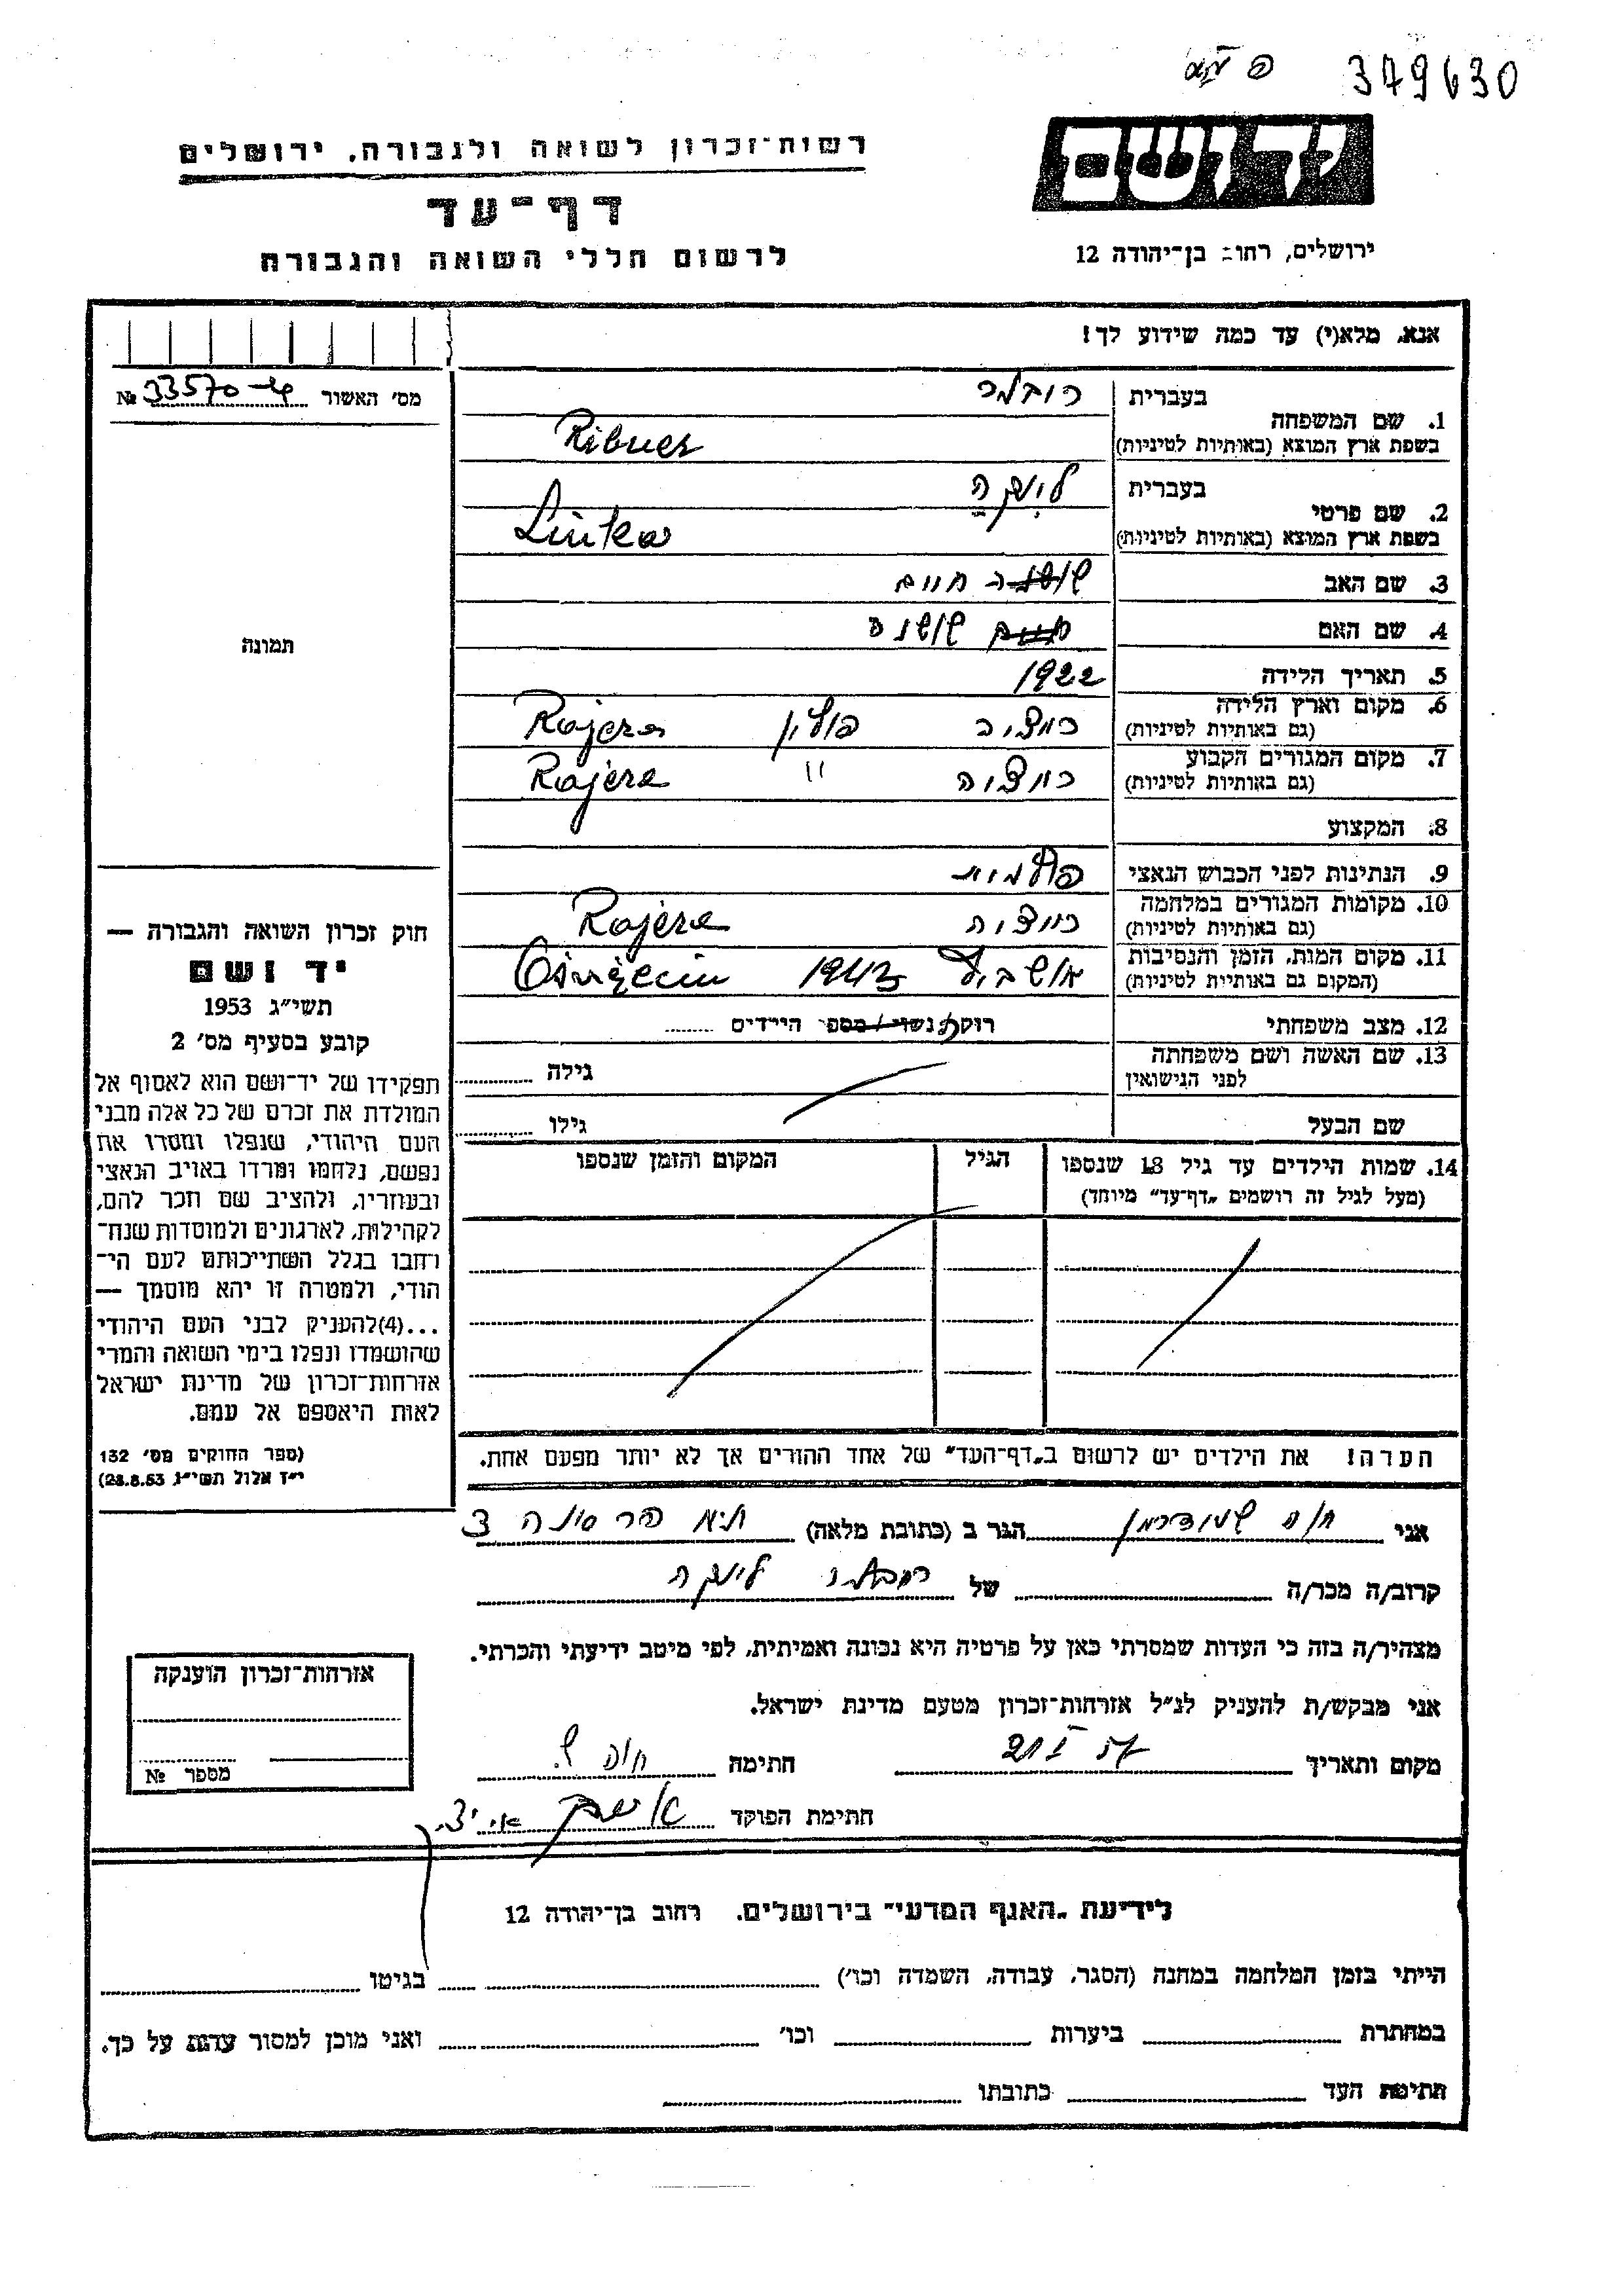 379630
יד ושם
רשות־זכרון לשואה ולגבורה, ירושלים
דף־עד
לרשום חללי השואה והגבורה
ירושלים, רחוב בן־יהודה 12
אנא, מלא(י) עד כמה שידוע לך!
מס׳ האשור 33570 №
תמונה
בעברית
1. שם המשפחה
בשפת ארץ המוצא (באותיות לטיניות) Ribner
בעברית לינקה
2. שם פרטי
בשפת ארץ המוצא (באותיות לטיניות) Linka
3. שם האב שושנה חיים
4. שם האם חיים שושנה
5. תאריך הלידה 1922
6. מקום וארץ הלידה
(גם באותיות לטיניות) פולין
7. מקום המגורים הקבוע
(גם באותיות לטיניות) "
8. המקצוע
9. הנתינות לפני הכבוש הנאצי פולנית
10. מקומות המגורים במלחמה
(גם באותיות לטיניות)
11. מקום המות, הזמן והנסיבות
(המקום גם באותיות לטיניות) 1943 Oświęcim
12. מצב משפחתי רוק/נשוי/מספר הילדים
13. שם האשה ושם משפחתה
לפני הנישואין גילה
שם הבעל גילו
14. שמות הילדים עד גיל 18 שנספו הגיל המקום והזמן שנספו
(מעל לגיל זה רושמים „דף־עד” מיוחד)
הערה! את הילדים יש לרשום ב„דף־העד” של אחד ההורים אך לא יותר מפעם אחת.
חוק זכרון השואה והגבורה —
יד ושם
תשי״ג 1953
קובע בסעיף מס׳ 2
תפקידו של יד־ושם הוא לאסוף אל
המולדת את זכרם של כל אלה מבני
העם היהודי, שנפלו ומסרו את
נפשם, נלחמו ומרדו באויב הנאצי
ובעוזריו, ולהציב שם וזכר להם,
לקהילות, לארגונים ולמוסדות שנח־
רחבו בגלל השתייכותם לעם הי־
הודי, ולמטרה זו יהא מוסמך —
...(4)להעניק לבני העם היהודי
שהושמדו ונפלו בימי השואה והמרי
אזרחות־זכרון של מדינת ישראל
לאות היאספם אל עמם.
(ספר החוקים מס׳ 132
י״ז אלול תשי״ג 28.8.53)
אני חוה הגר ב (כתובת מלאה)
קרוב/ה מכר/ה של לינקה
מצהיר/ה בזה כי העדות שמסרתי כאן על פרטיה היא נכונה ואמיתית, לפי מיטב ידיעתי והכרתי.
אני מבקש/ת להעניק לנ״ל אזרחות־זכרון מטעם מדינת ישראל.
מקום ותאריך חתימה חוה ש.
חתימת הפוקד
אזרחות־זכרון הוענקה
מספר №
לידיעת „האגף המדעי” בירושלים. רחוב בן־יהודה 12
הייתי בזמן המלחמה במחנה (הסגר, עבודה, השמדה וכו׳) בגיטו
במחתרת ביערות וכו׳ ואני מוכן למסור עדות על כך.
חתימת העד כתובתו